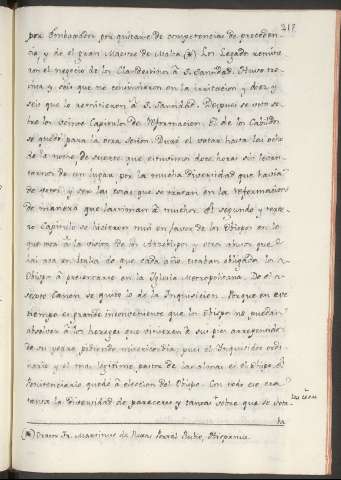 317
por Embaxador por quitarse de competencias de preceden-
cia, y de el gran Maestre de Malta (*) Los Legados remitie-
ron el negocio de los Clandestinos à S. Santidad. Huvo tre-
ynta y seis que no convinieron en la irritacion y diez y
seis que lo remitieron à S. Santidad. Despues se voto so-
bre los veinte Capitulos de Reformacion. El de los Cabildos
se quedó para la otra sesion. Duró el votar hasta las ocho
de la noche de suerte que estuvimos doce horas sin levan-
tarnos de un lugar por la mucha diversidad que havia
de votos y ser las cosas que se tratan en la Reformacion
de manera que lastiman à muchos. Al segundo y terce-
ro Capitulo se hicieron mui en favor de los Obispos en lo
que toca à la visita de los Arzobispos y otros abusos que
hai acá en Italia de que cada año estaban obligados los O-
bispos à presentarse en la Yglesia Metropolitana. De el
sexto Canon se quitó lo de la Inquisicion. Porque en este
tiempo es grande inconveniente que los Obispos no puedan
absolver à los hereges que vinieren à sus pies arrepentidos
de su yerro pidiendo misericordia; pues el Inquisidor ordi-
nario y el mas legitimo pastor de las almas es el Obispo. El
Penitenciario quedó à eleccion del Obispo. Con todo eso era
tanta la diversidad de pareceres y tantas las cosas sobre que se vota-
ba
(*) Orator Fr. Martinus de Roxas Portal Rubio, Hispanus.